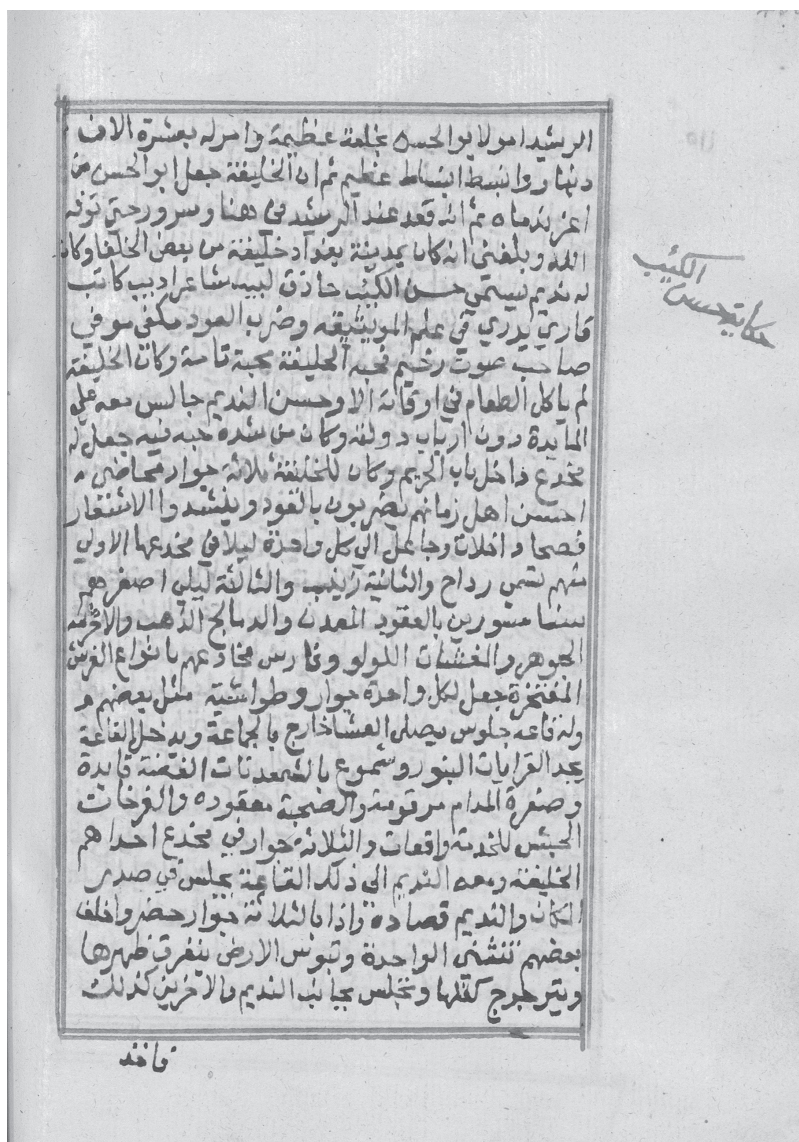 الرشيد امر لابو الحسن بخلعة عظيمة وامر له بعشرة الاف
دينار وانبسط انبساط عظيم ثم ان الخليفة جعل ابو الحسن من
اعز ندماه ثم انه قعد عند الرشيد في هنا وسرور حتي توفه
الله وبلغني انه كان بمدينة بغداد خليفة من بعض الخلفا وكان
له نديم يسمي حسن الكئيب حاذق لبيب شاعر اديب كاتب
قاري يدري في علم الموسيقه وضرب العود مكفي موفي
صاحب صوت رخيم فحبه الخليفة محبة تامة وكان الخليفة
لم ياكل الطعام في اوقاته الا وحسن النديم جالس معه علي
المايدة دون ارباب دولته وكان من شدة حبه فيه جعل له
مخدع داخل باب الحريم وكان للخليفة ثلاثة جوار محاضي
احسن اهل زمانهم يضربون بالعود وينشدوا الاشعار
فصحا واخلات وجاعل الي كل واحدة ليلا في مخدعها الاولي
منهم تسمي رداح والثانية زينب والثالثة ليلي اصغرهم
سنا مسورين بالعقود المعدن والدمالج الذهب والاخرمه
الجوهر والمغشيات اللولو وفارس مخادعهم بانواع الفرش
المفتخرة جعل لكل واحدة جوار وطواشية مثل بعضهم
وله قاعه جلوس يصلي العشا خارج بالجماعة ويدخل القاعة
يجد القرايات البنور وشموع بالشمعدنات الفضة قايدة
وصفرة المدام مرقومة والضحبة معقوده والفرخات
الحبش للخدمة واقعات والثلاثة جوار في مخدع احداهم
الخليفة ومعه النديم الي ذلك القاعة يجلس في صدر
المكان والنديم قصاده واذا بالثلاثة جوار حضروا خلف
بعضهم تنثني الواحدة وتبوس الارض ينفرق ظهرها
ويترجرج كفلها وتجلس بجانب النديم والاخرين كذلك
فاخذ
حكاية حسن الكئيب